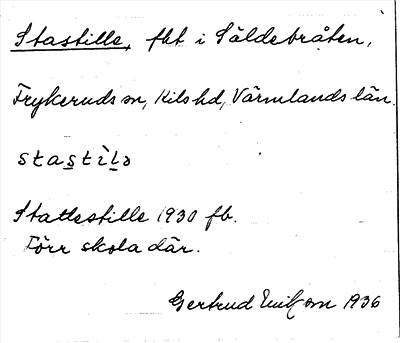 Stastille, fht i Säldebråten,
Frykeruds sn, Kils hd, Värmlands län.
stastìlə
Stattestille 1930 fb.
Förr skola där.
Gertrud 1936